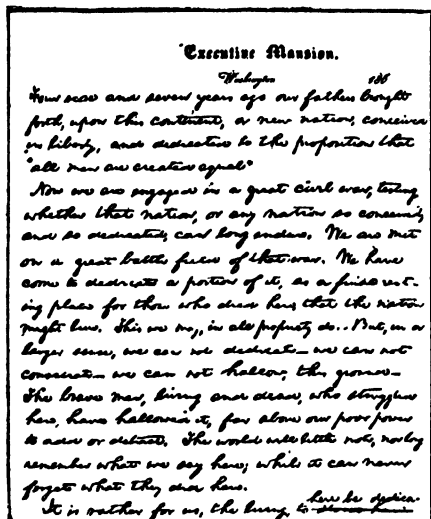 Executive Mansion.
Washington 186
Four score and seven years ago our fathers brought
forth, upon this continent, a new nation, conceived
in liberty, and dedicated to the proposition that
"all men are created equal"
Now we are engaged in a great civil war, testing
whether that nation, or any nation so conceived,
and so dedicated, can long endure. We are met
on a great battle field of that war. We have
come to dedicate a portion of it, as a final rest-
ing place for those who died here, that the nation
might live. This we may, in all propriety do. But, in a
larger sense, we can not dedicate— we can not
consecrate— we can not hallow, this ground—
The brave men, living and dead, who struggled
here, have hallowed it, far above our poor power
to add or detract. The world will little note, nor long
remember what we say here; while it can never
forget what they did here.
It is rather for us, the living, to here be dedica-